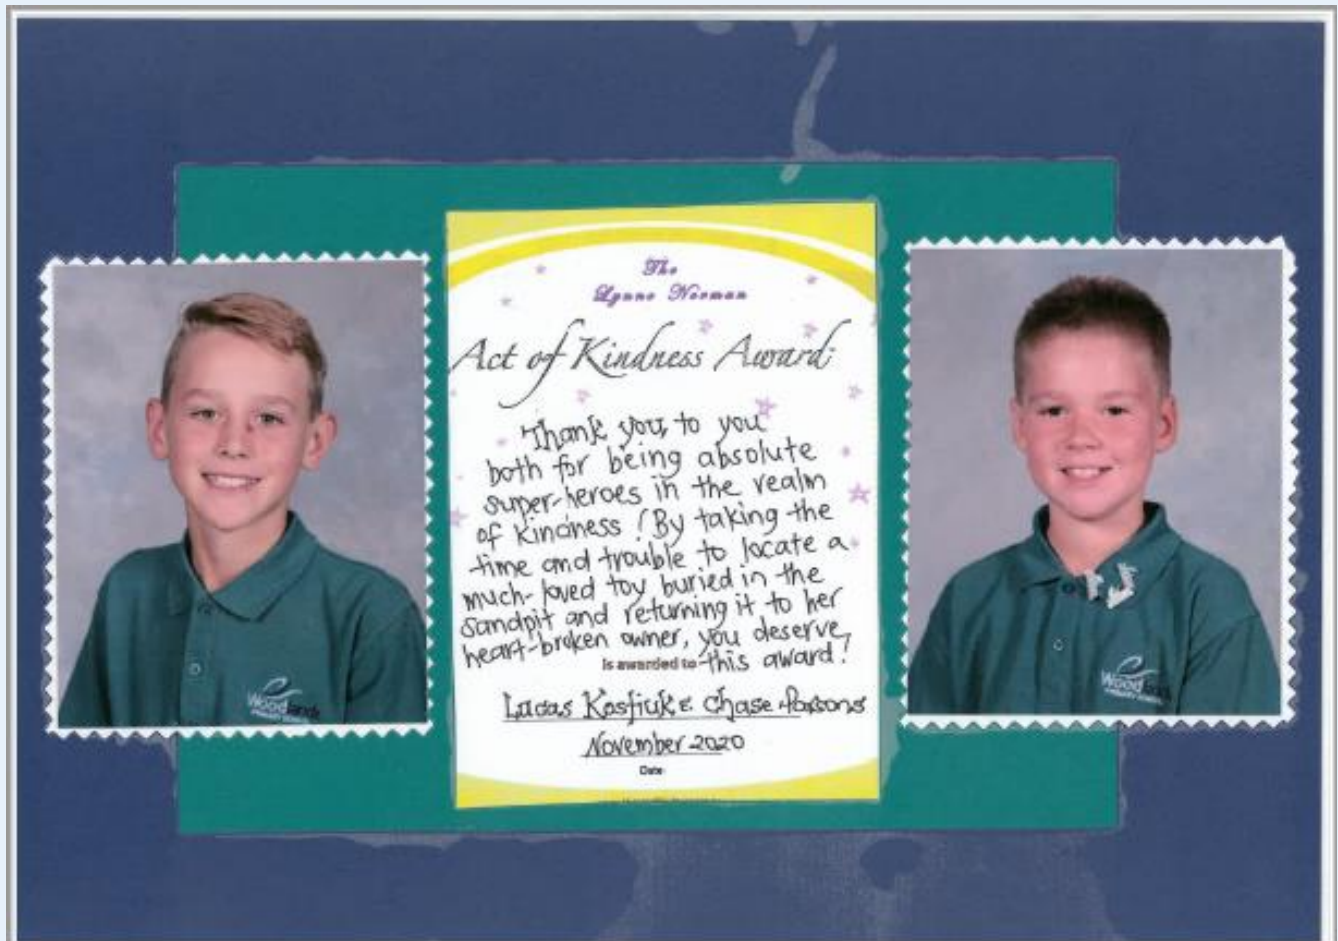 The
Lynne Norman
Act of Kindness Award
Thank you, to you
both for being absolute
super-heroes in the realm
of kindness! By taking the
time and trouble to locate a
much-loved toy buried in the
sandpit and returning it to her
heart-broken owner, you deserve
is awarded to this award!
Lucas Kostiuk & Chase Parsons
November 2020
Date
Woodlands
PRIMARY SCHOOL
Woodlands
PRIMARY SCHOOL